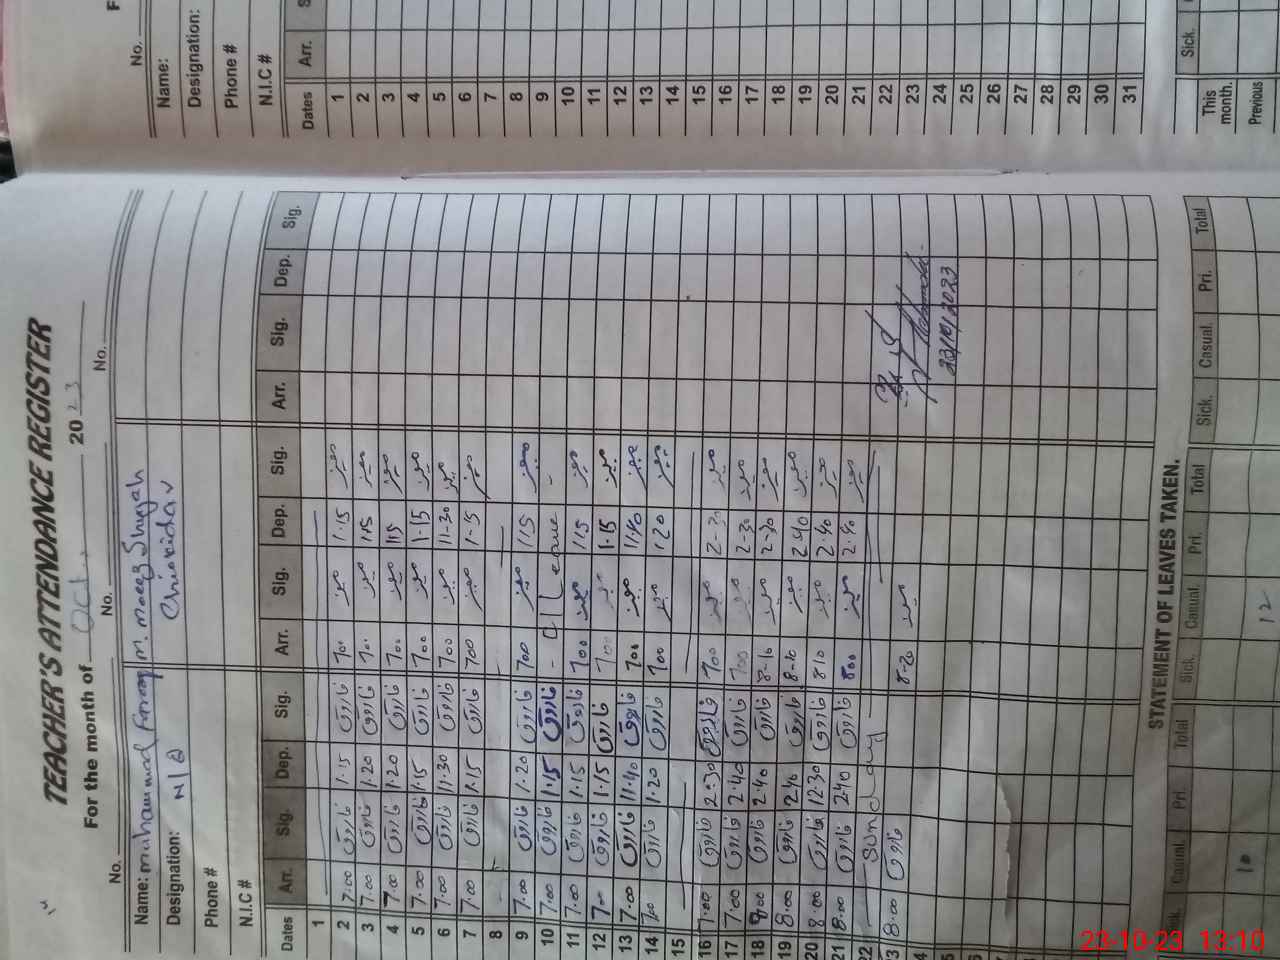 TEACHER'S ATTENDANCE REGISTER
For the month of Oct. 2023
No. No. No.
Name: muhammad Farooq M. Moeez Shujah
Designation: N/Q Chowkidar
Phone #
N.I.C #
Dates Arr. Sig. Dep. Sig. Arr. Sig. Dep. Sig. Arr. Sig. Dep. Sig.
1
2 7.00 فاروق 1.15 فاروق 700 معیز 1.15 معیز
3 7.00 فاروق 1.20 فاروق 700 معیز 115 معیز
4 7.00 فاروق 1.20 فاروق 700 معیز 115 معیز
5 7.00 فاروق 1.15 فاروق 700 معیز 1-15 معیز
6 7.00 فاروق 11.30 فاروق 700 معیز 11-30 معیز
7 7.00 فاروق 1.15 فاروق 700 معیز 1-15 معیز
8
9 7.00 فاروق 1.20 فاروق 700 معیز 115 معیز
10 7.00 فاروق 1.15 فاروق - C/Leave -
11 7.00 فاروق 1.15 فاروق 700 معیز 115 معیز
12 700 فاروق 1.15 فاروق 700 معیز 1.15 معیز
13 7.00 فاروق 11.40 فاروق 700 معیز 11.40 معیز
14 700 فاروق 1.20 فاروق 700 معیز 120 معیز
15
16 7.00 فاروق 2.30 فاروق 700 معیز 2-30 معیز
17 7.00 فاروق 2.40 فاروق 700 معیز 2-30 معیز
18 8.00 فاروق 2.40 فاروق 8-10 معیز 2-30 معیز
19 8.00 فاروق 2.40 فاروق 8-10 معیز 2.40 معیز
20 8.00 فاروق 12.30 فاروق 810 معیز 2.40 معیز
21 8.00 فاروق 2.40 فاروق 800 معیز 2.40 معیز
22 Sunday
23 8.00 فاروق 8-20 معیز
22/10/2023
STATEMENT OF LEAVES TAKEN.
Casual. Pri. Total Sick. Casual. Pri. Total Sick. Casual. Pri. Total
10 12
No.
Name:
Designation:
Phone #
N.I.C #
Dates Arr.
1
2
3
4
5
6
7
8
9
10
11
12
13
14
15
16
17
18
19
20
21
22
23
24
25
26
27
28
29
30
31
Sick.
This month.
Previous
23-10-23 13:10